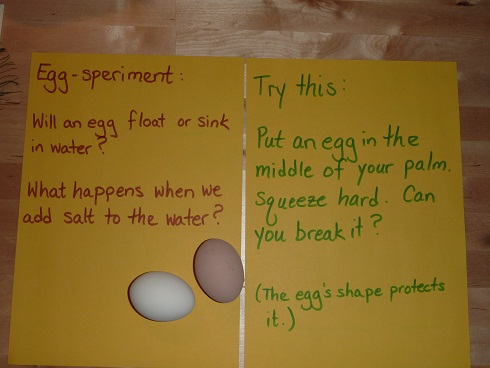 Egg-speriment:
Will an egg float or sink
in water?
What happens when we
add salt to the water?
Try this:
Put an egg in the
middle of your palm.
Squeeze hard. Can
you break it?
(The egg's shape protects
it.)